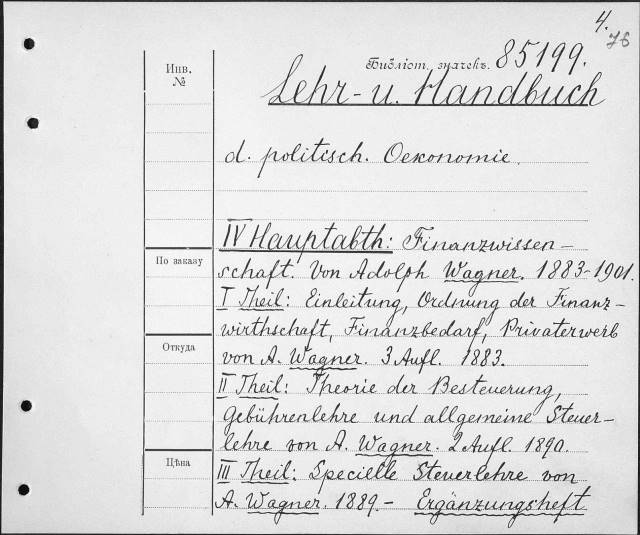 4.
76
Инв.
№
Библіот. значекъ. 85199.
Lehr- u. Handbuch
d. politisch. Oekonomie.
IV Hauptabth: Finanzwissen-
По заказу
schaft. Von Adolph Wagner. 1883-1901.
I Theil: Einleitung, Ordnung der Finanz-
wirthschaft, Finanzbedarf, Privaterwerb
Откуда
von A. Wagner. 3 Aufl. 1883.
II Theil: Theorie der Besteuerung,
Gebührenlehre und allgemeine Steuer-
lehre von A. Wagner. 2 Aufl. 1890.
Цѣна
III Theil: Specielle Steuerlehre von
A. Wagner. 1889.- Ergänzungsheft